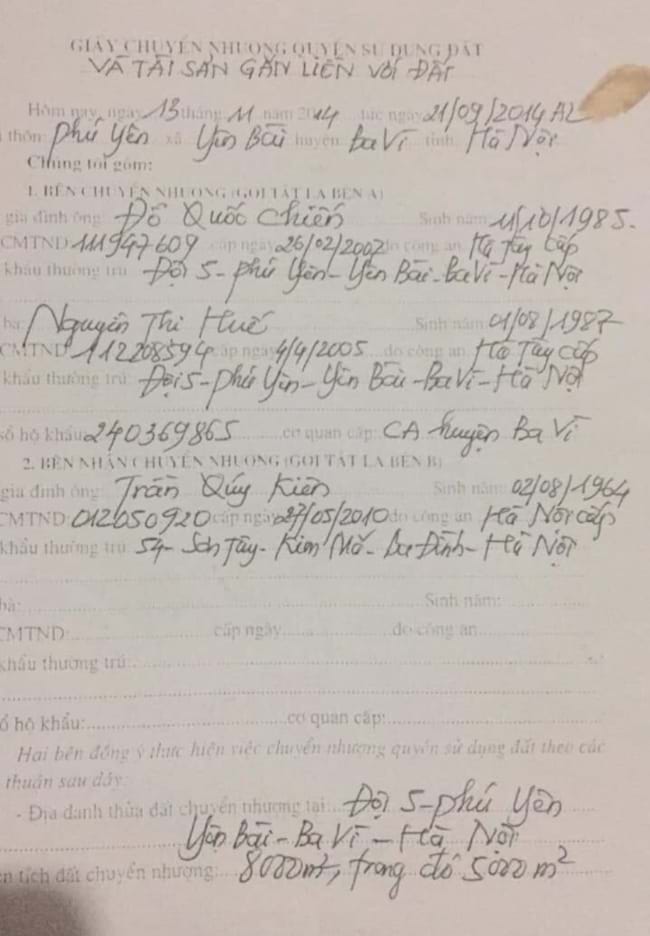 GIẤY CHUYỂN NHƯỢNG QUYỀN SỬ DỤNG ĐẤT
VÀ TÀI SẢN GẮN LIỀN VỚI ĐẤT
Hôm nay, ngày 13 tháng 11 năm 2014 tức ngày 21/09/2014 AL
thôn: Phú Yên xã Yên Bài huyện Ba Vì tỉnh Hà Nội
Chúng tôi gồm:
1. BÊN CHUYỂN NHƯỢNG (GỌI TẮT LÀ BÊN A)
gia đình ông: Đỗ Quốc Chiến Sinh năm: 11/10/1985.
CMTND: 111947609 cấp ngày 26/02/2002 do công an Hà Tây cấp
khẩu thường trú Đội 5 - Phú Yên - Yên Bài - Ba Vì - Hà Nội
bà: Nguyễn Thị Huế Sinh năm: 01/08/1987
CMTND: 112208594 cấp ngày 4/4/2005 do công an Hà Tây cấp
khẩu thường trú: Đội 5 - Phú Yên - Yên Bài - Ba Vì - Hà Nội
số hộ khẩu: 240369865 cơ quan cấp: CA huyện Ba Vì
2. BÊN NHẬN CHUYỂN NHƯỢNG (GỌI TẮT LÀ BÊN B)
gia đình ông: Trần Quý Kiên Sinh năm: 02/08/1964
CMTND: 012050920 cấp ngày 27/05/2010 do công an Hà Nội cấp
khẩu thường trú: 54 - Sơn Tây - Kim Mã - Ba Đình - Hà Nội
bà: Sinh năm:
CMTND: cấp ngày do công an
khẩu thường trú:
ổ hộ khẩu: cơ quan cấp:
Hai bên đồng ý thực hiện việc chuyển nhượng quyền sử dụng đất theo các
thuận sau đây:
- Địa danh thửa đất chuyển nhượng tại: Đội 5 - Phú Yên
Yên Bài - Ba Vì - Hà Nội
ện tích đất chuyển nhượng: 8000m², trong đó 5000 m²